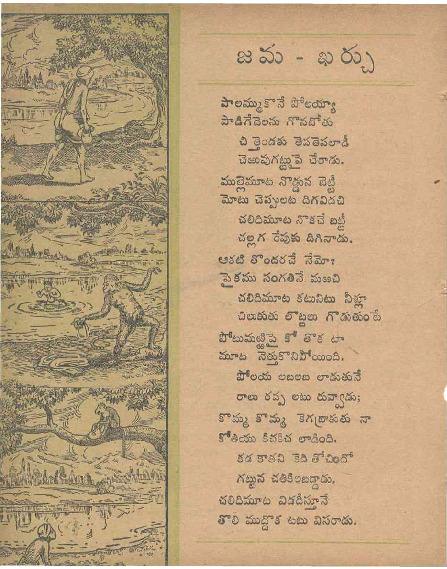 జమ - ఖర్చు
పాలమ్ముకొనే పోలయ్యా
పాడిగేదెలను గొనబోతు
చిత్తెండకు తెపతెపలాడీ
చెఱువుగట్టుపై చేరాడు.
ముల్లెమూట నొడ్డున బెట్టీ
మోటు చెప్పులట దిగవిడచి
చలిదిమూట నొకచే బట్టీ
చల్లగ రేవుకు దిగినాడు.
ఆకటి తొందరచే నేమో!
పైకము సంగతినే మఱచి
చలిదిమూట కటునిటు నీళ్లు
చిలుకుతు లొట్టలు గొడుతుంటే
పోటుమఱ్ఱిపై కోతొక టా
మూట నెత్తుకొనిపోయింది.
పోలయ లబలబ లాడుతునే
రాలు రువ్వ లటు రువ్వాడు;
కొమ్మ కొమ్మ కెగబ్రాకుతు నా
కోతియు కిచకిచ లాడింది.
కడ కాతని కెది తోచిందో
గట్టున చతికిలబడ్డాడు.
చలిదిమూట విడదీస్తూనే
తొలి ముద్దొక టటు విసరాడు.